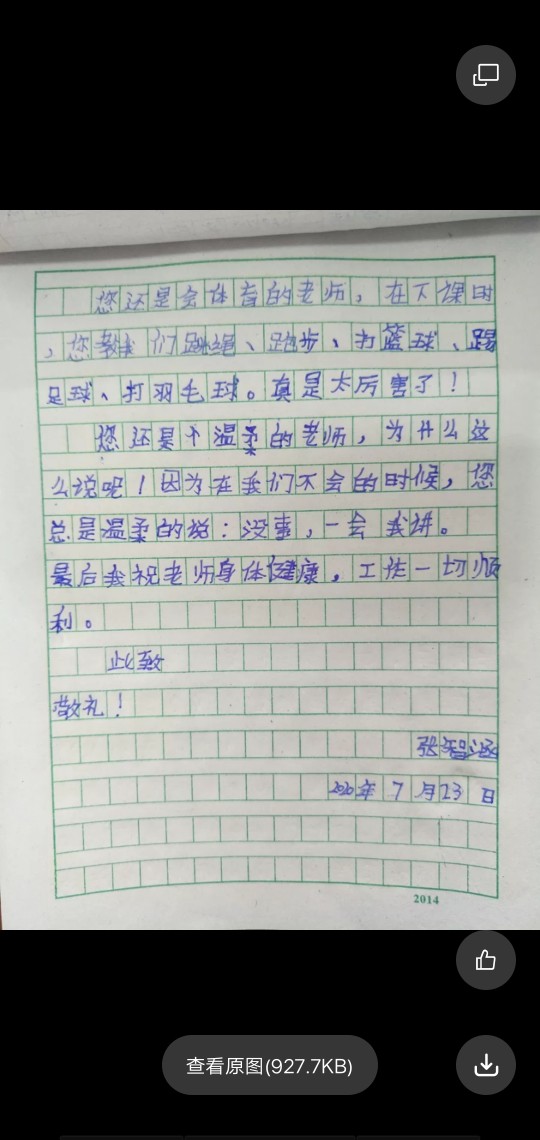 您还是会体育的老师，在下课时
，您教我们跳绳、跑步、打篮球、踢
足球、打羽毛球。真是太厉害了！
您还是个温柔的老师，为什么这
么说呢！因为在我们不会的时候，您
总是温柔的说：没事，一会我讲。
最后我祝老师身体健康，工作一切顺
利。
此致
敬礼！
张智涵
2020年7月23日
2014
查看原图(927.7KB)